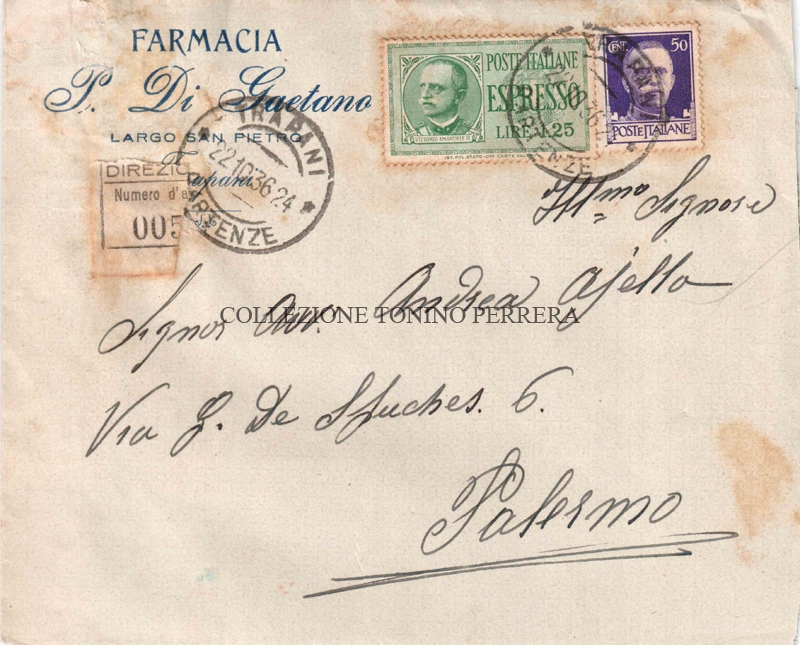 FARMACIA
P. Di Gaetano
LARGO SAN PIETRO
Trapani
DIREZIO
Numero d'a
005
TRAPANI
22.10.36.24
PARTENZE
POSTE ITALIANE
ESPRESSO
LIRE 1,25
VITTORIO EMANUELE III
CENT. 50
POSTE ITALIANE
Ill.mo Signore
Signor Avv. Andrea Ajello
COLLEZIONE TONINO PERRERA
Via G. De Spuches. 6.
Palermo